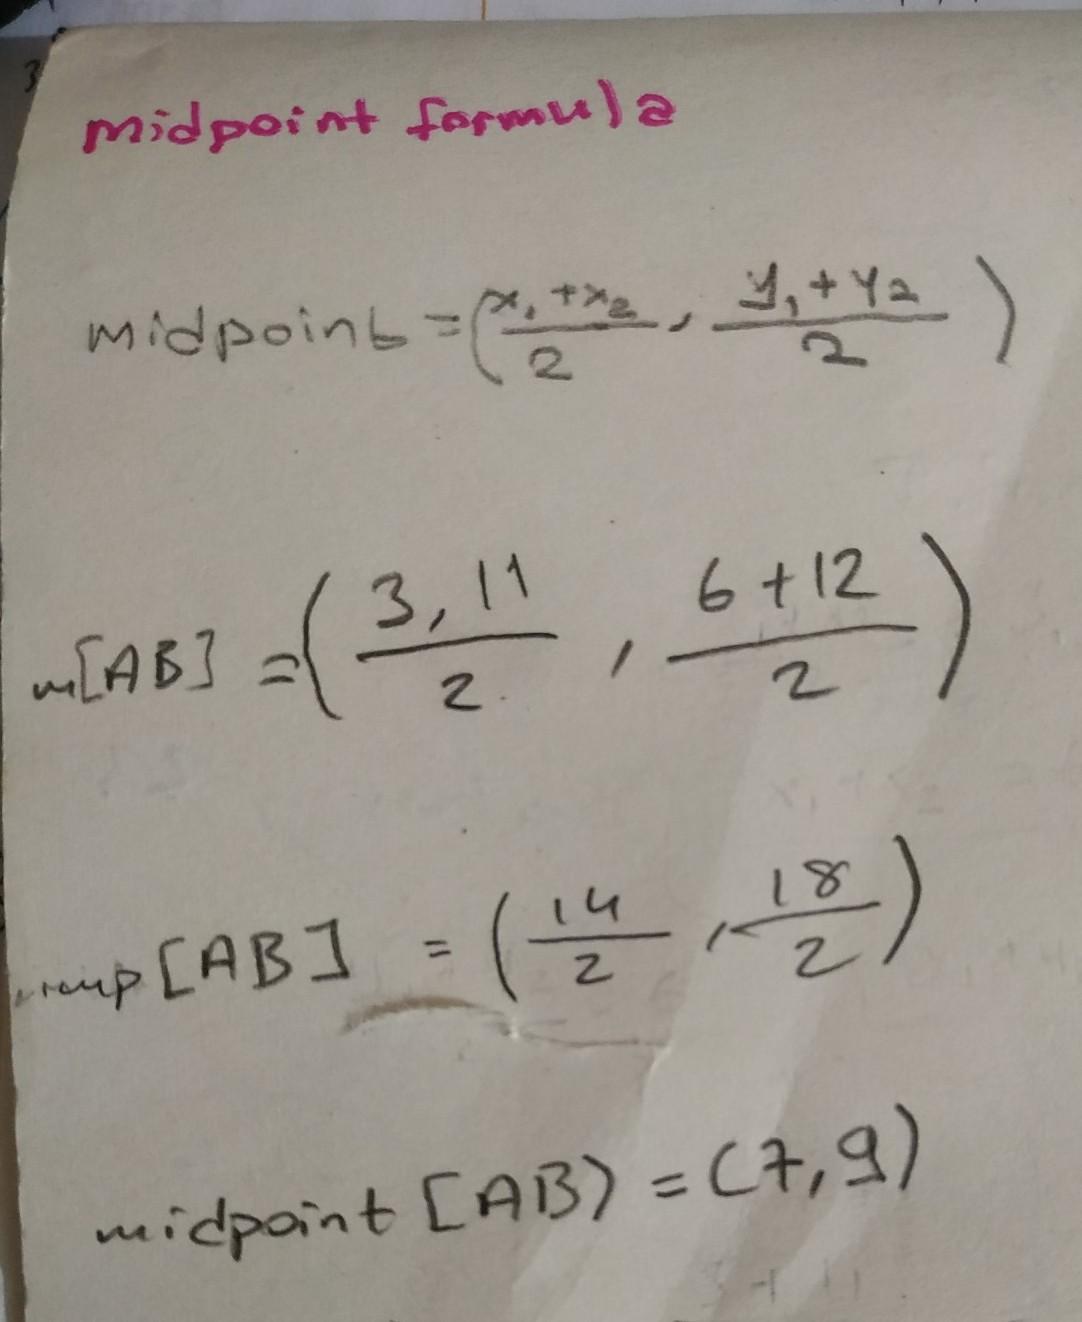 midpoint formula
midpoint = (x₁ + x₂ / 2 , y₁ + y₂ / 2)
m[AB] = (3, 11 / 2 , 6 + 12 / 2)
mp[AB] = (14 / 2 , 18 / 2)
midpoint [AB) = (7, 9)